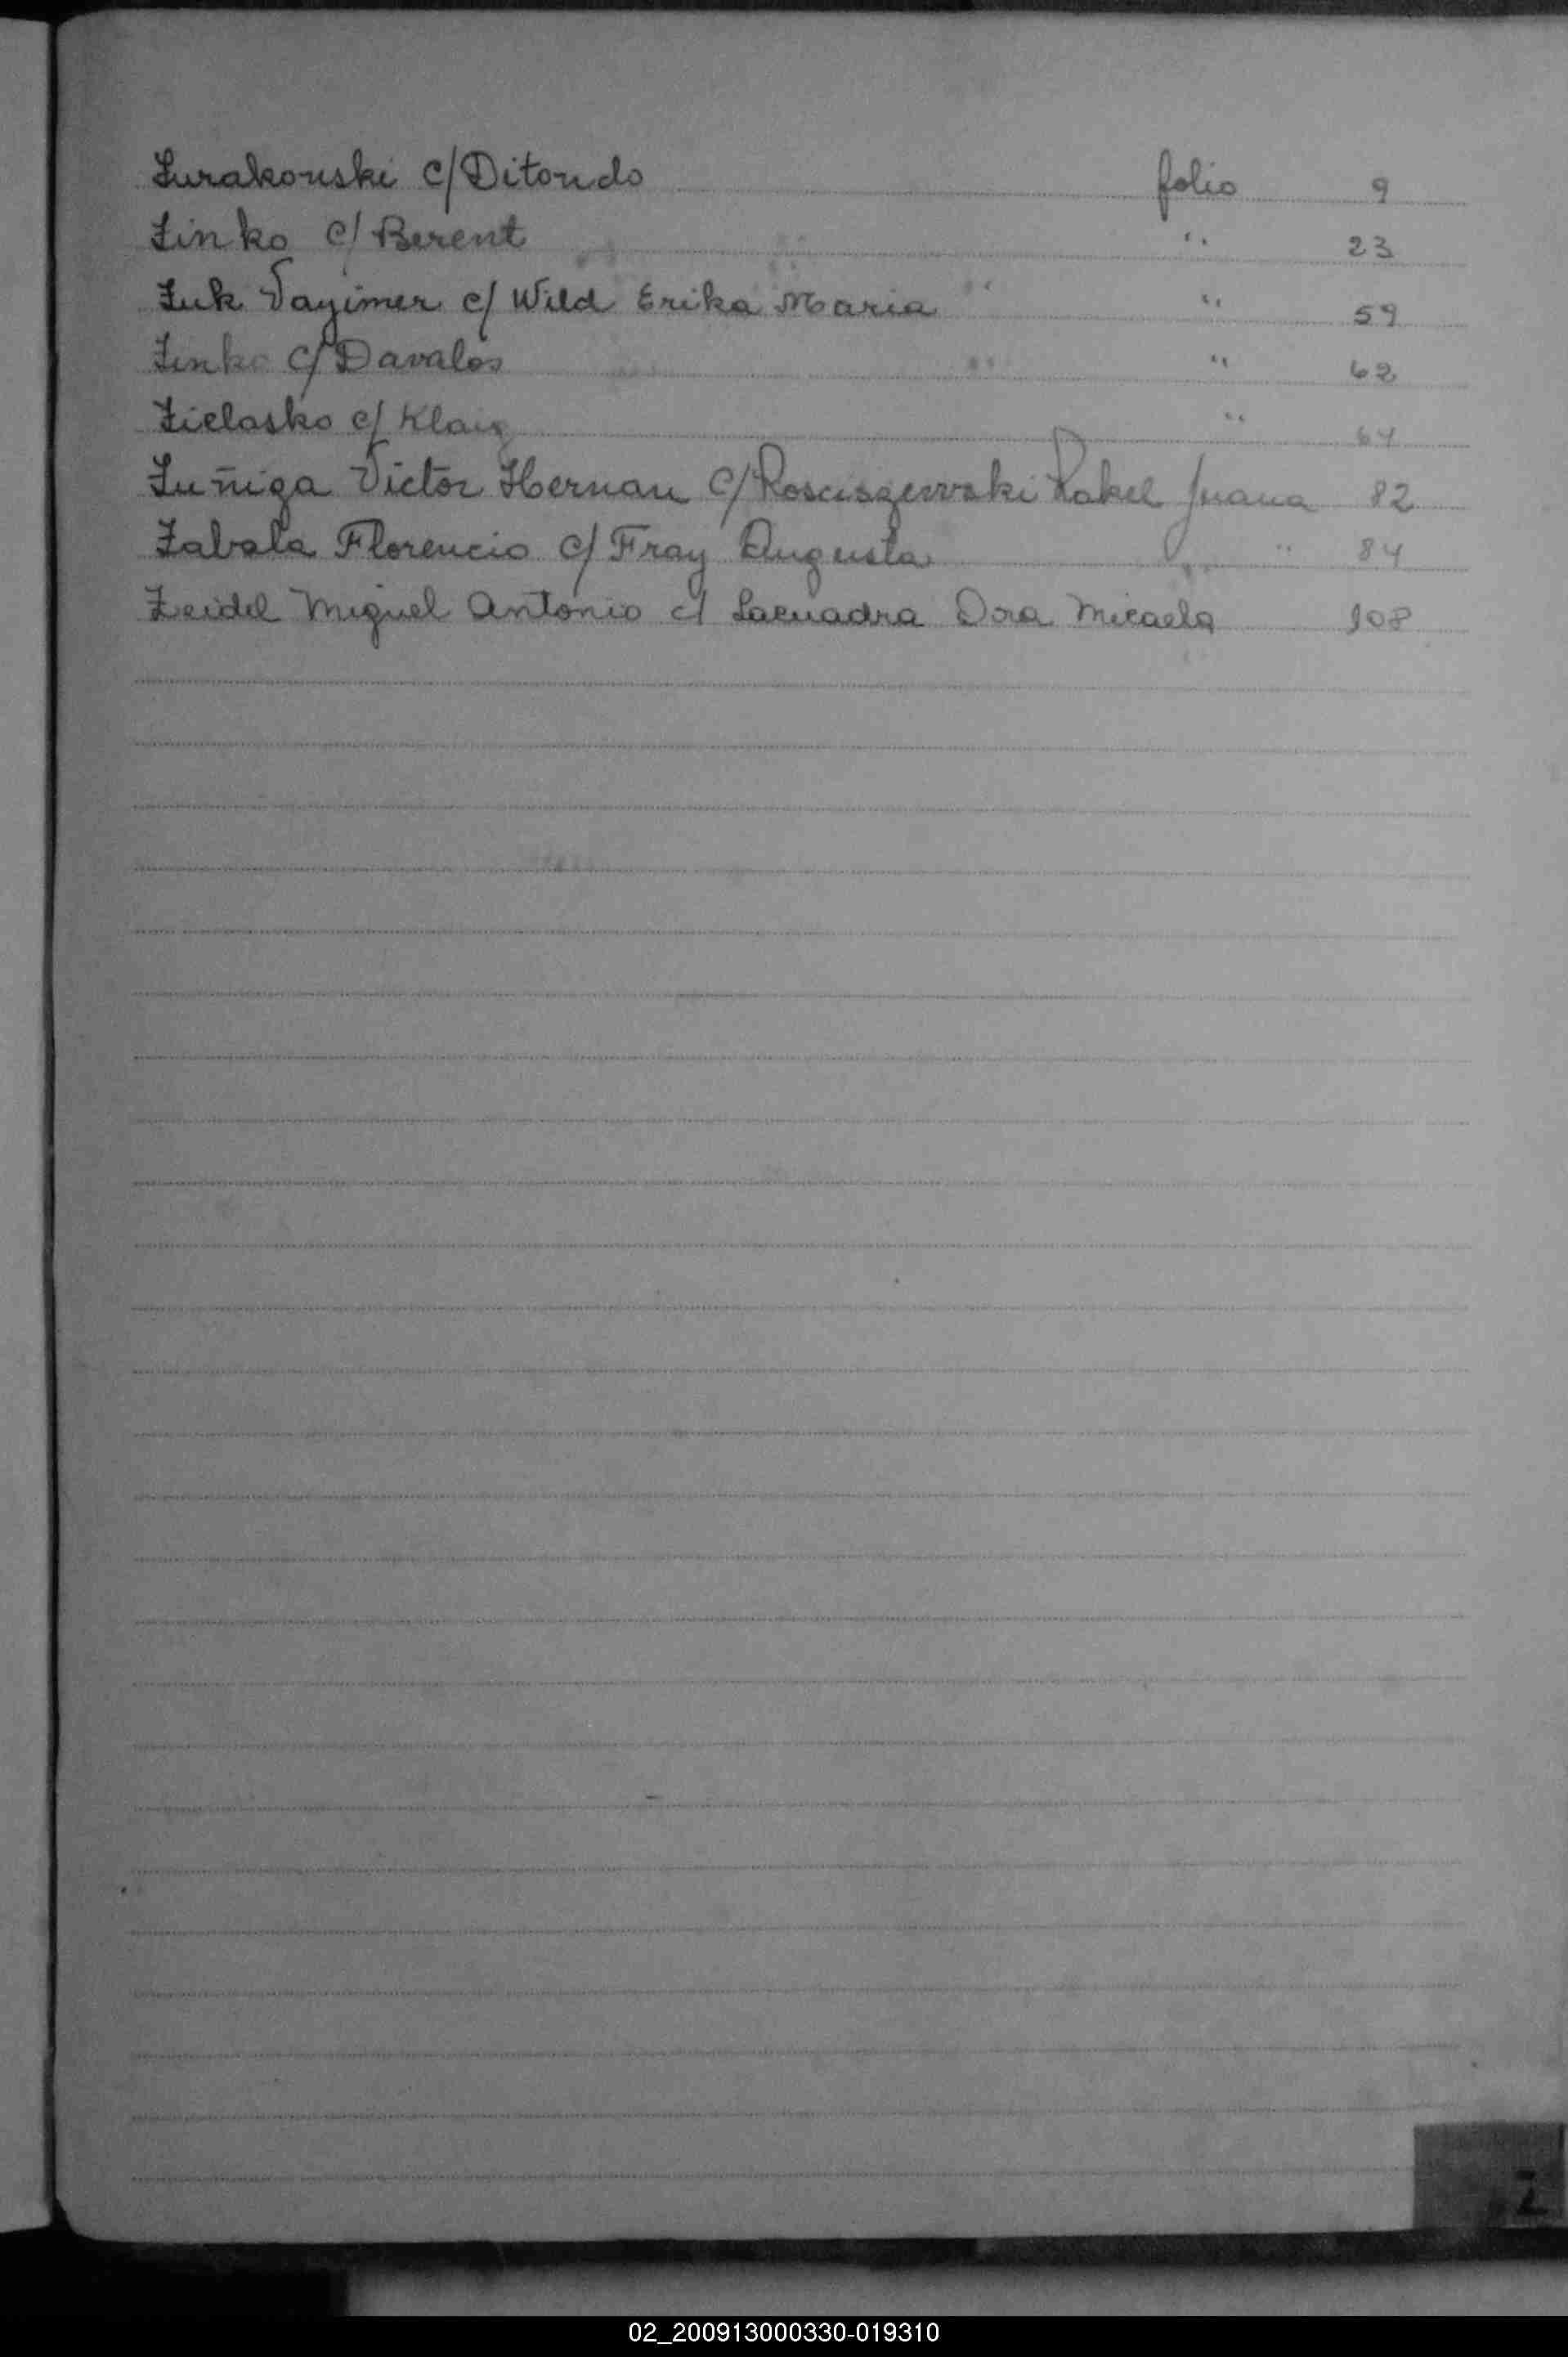 Zurakouski c/ Ditondo folio 9
Zinko c/ Berent " 23
Zuk Vayimer c/ Wild Erika Maria " 59
Zinko c/ Davalos " 62
Zielasko c/ Klaiz " 64
Zuñiga Victor Hernan c/ Rosciszewski Rakel Juana 82
Zabala Florencio c/ Fray Augusta " 84
Zeidel Miguel Antonio c/ Lacuadra Dora Micaela 108
Z
02_200913000330-019310